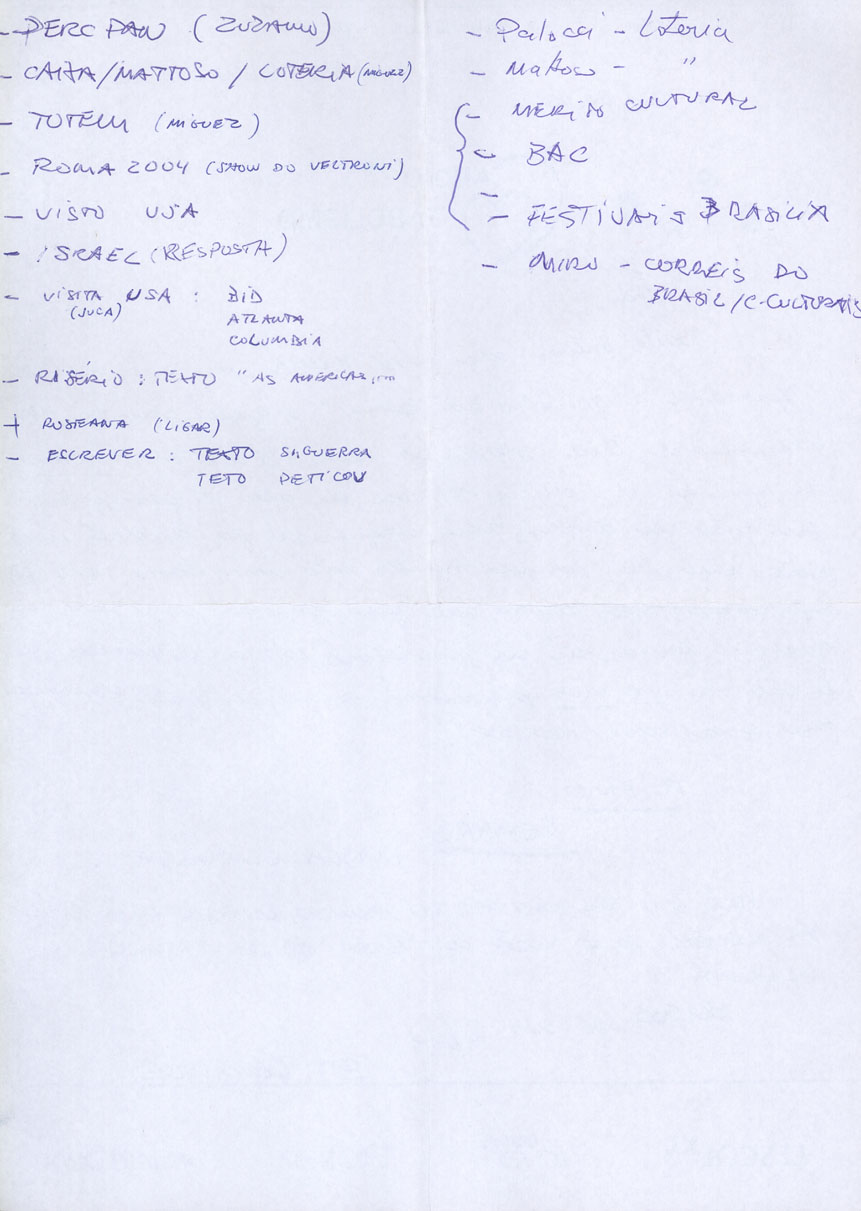 - PERC PAN (ZUZANNO)
- CAIXA/MATTOSO / LOTERIA (MIGUEZ)
- TOTEM (MIGUEZ)
- ROMA 2004 (SHOW DO VELTRONI)
- VISTO USA
- ISRAEL (RESPOSTA)
- VISITA USA : BID
(JUCA) ATLANTA
COLUMBIA
- RISÉRIO : TEXTO "AS AMERICAS,...
+ ROSEANA (LIGAR)
- ESCREVER : TEXTO S/GUERRA
TETO PETICOV
- Palocci - Loteria
- Mattoso - "
- MERITO CULTURAL
- BAC
-
- FESTIVAIS BRASILIA
- MIRO - CORREIS DO
BRASIL/C-CULTURAIS